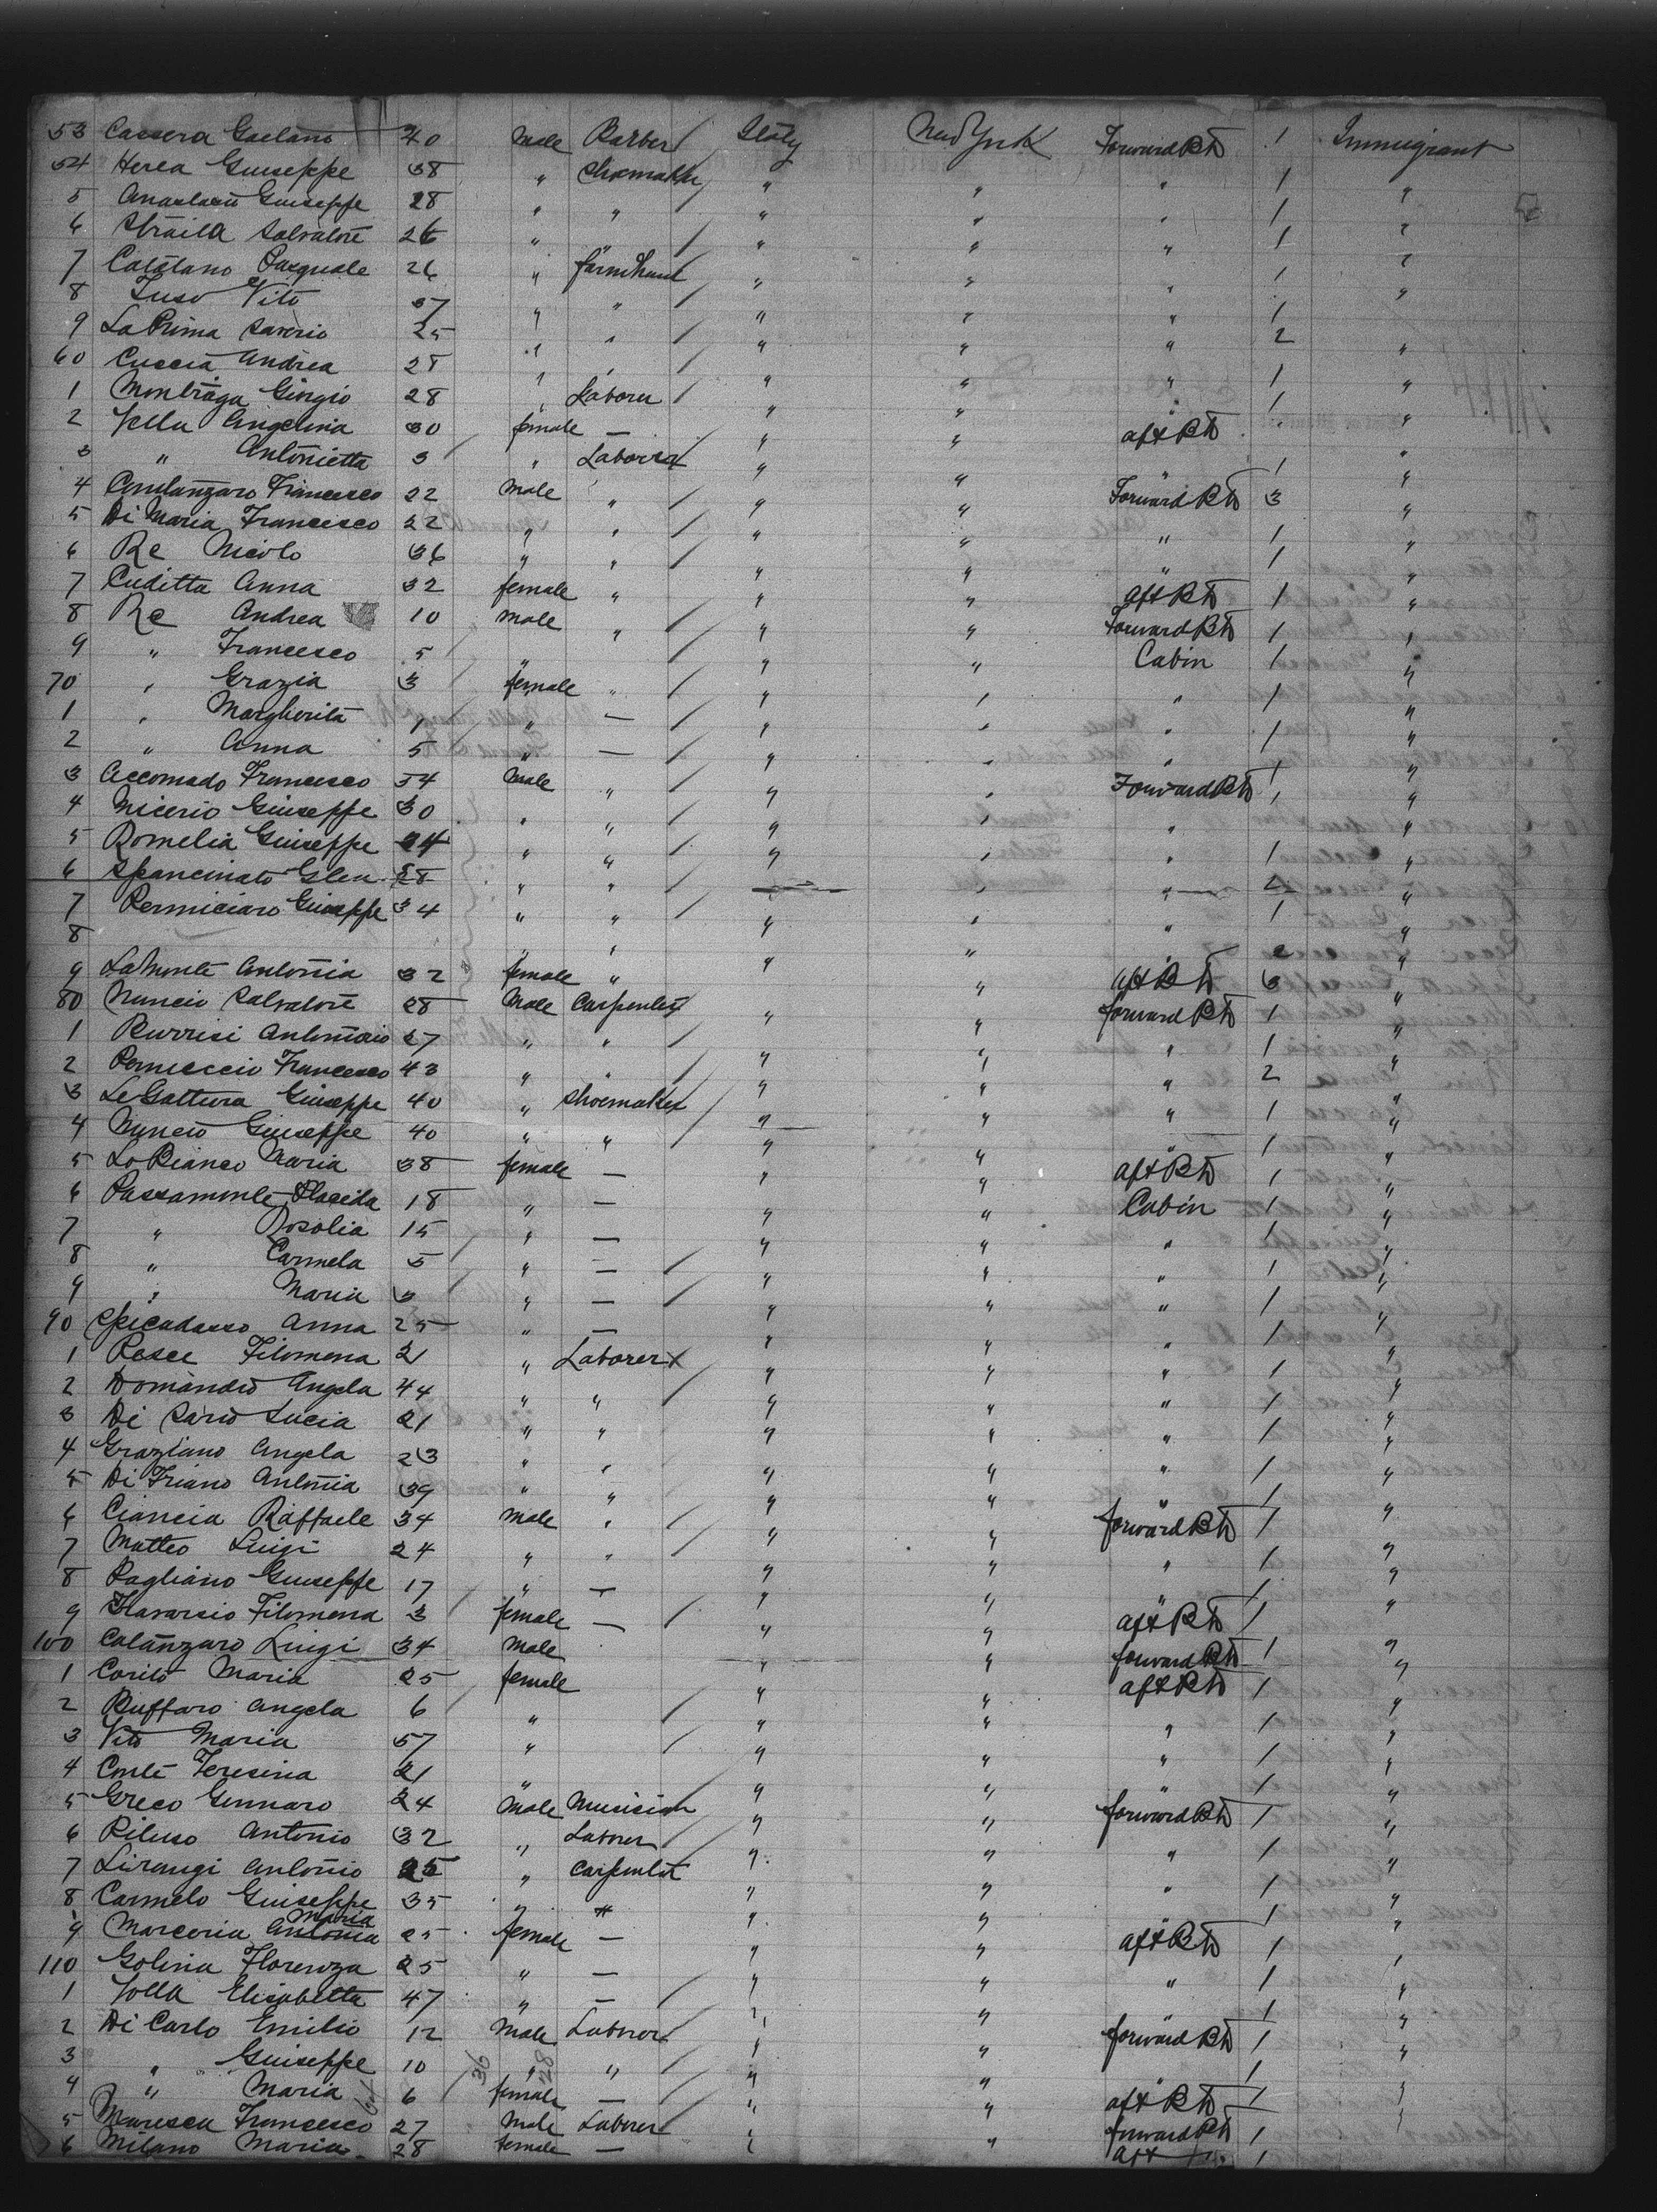 53 Cassera Gaetano 40 Male Barber / Italy New York Forward Bth 1 Immigrant
54 Herea Guiseppe 38 " Shoemaker " " " 1 "
5 Guiseppe 28 " " " " " 1 "
6 Straila Salvatore 26 " / " " " 1 "
7 Catalano Pasquale 26 " farmhand " " " 1 "
8 Fuso Vito 37 " " / " " " 1 "
9 La Prima Saverio 25 " " / " " " 2 "
60 Cuccia Andrea 28 " " / " " " 1 "
1 Monbraga Giorgio 28 " Laborer / " " " 1 "
2 Vella Angelina 30 female — " " aft Bth "
3 " Antonietta 3 / " Laborer " " " 1 "
4 Francesco 22 Male " / " " Forward Bth 3 "
5 Di Maria Francesco 22 " " / " " " 1 "
6 Re Nicolo 36 " " / " " " 1 "
7 Cuditta Anna 32 female " / " " aft Bth 1 "
8 Re Andrea 10 male " / " " Forward Bth 1 "
9 " Francesco 5 / " / " " Cabin 1 "
70 " Grazia 3 / female " / " " " 1 "
1 " Margherita 1 / " — / " " " 1 "
2 " Anna 5 / " — / " " " 1 "
3 Accomado Francesco 54 Male " / " " Forward Bth 1 "
4 Nicerio Giuseppe 30 " " / " " " "
5 Romelia Giuseppe 24 " " / " " " 1 "
6 Spancinato Glen 28 " " / " " 2 "
7 Permiciaro Guiseppe 34 " " / " " " 1 "
8 " " " " 2 "
9 La Monte Antonia 32 female " " aft Bth 3 "
80 Nuncio Salvatore 28 Male Carpenter " " forward Bth 1 "
1 Burrisi Antonio 27 " " / " " " 1 "
2 Francesco 43 " " / " " " 2 "
3 Le Gattura Giuseppe 40 " Shoemaker / " " " 1 "
4 Nuncio Giuseppe 40 " " / " " " 1 "
5 Lo Bianco Maria 38 female — " " aft Bth 1 "
6 Passamonte Placida 18 " — " " Cabin 1 "
7 " Rosolia 15 " — / " " " 1 "
8 " Carmela 5 / " — / " " " 1 "
9 " Maria 3 / " — / " " " 1 "
90 Spicadasso Anna 25 " — " " " 1 "
1 Pesce Filomena 21 " Laborer " " " 1 "
2 Domandio Angela 44 " " / " " " 1 "
3 Di Sario Lucia 21 " " " " " 1 "
4 Graziano Angela 23 " " " " " 1 "
5 Di Friano Antonia 39 " " " " " 1 "
6 Ciancia Raffaele 34 male " / " " forward Bth 1 "
7 Matteo Luigi 24 " " / " " " 1 "
8 Pagliano Guiseppe 17 / " — " " " 1 "
9 Filomena 3 / female — / " " aft Bth 1 "
100 Catanzaro Luigi 34 male " " forward Bth 1 "
1 Corito Maria 25 female " " aft Bth 1 "
2 Buffaro Angela 6 / " / " " " 1 "
3 Vito Maria 57 " / " " " 1 "
4 Conte Teresina 21 " / " " " 1 "
5 Greco Gennaro 24 Male Musician " " forward Bth 1 "
6 Piluso Antonio 32 " Laborer " " " 1 "
7 Lirangi Antonio 25 " Carpenter " " " 1 "
8 Carmelo Guiseppe 35 " " " " " 1 "
9 Marceria Antonia Maria 25 female — " " aft Bth 1 "
110 Golina Florenza 25 " — " " " 1 "
1 Volla Elisabetta 47 " — / " " " 1 "
2 Di Carlo Emilio 12 Male Laborer " " forward Bth 1 "
3 " Guiseppe 10 36 " 28 " / " " 1 "
4 " Maria 6 / female — / " " aft Bth 1 "
5 Maresca Francesco 27 Male Laborer " " forward Bth 1 "
6 Milano Maria 28 female — " " aft 1